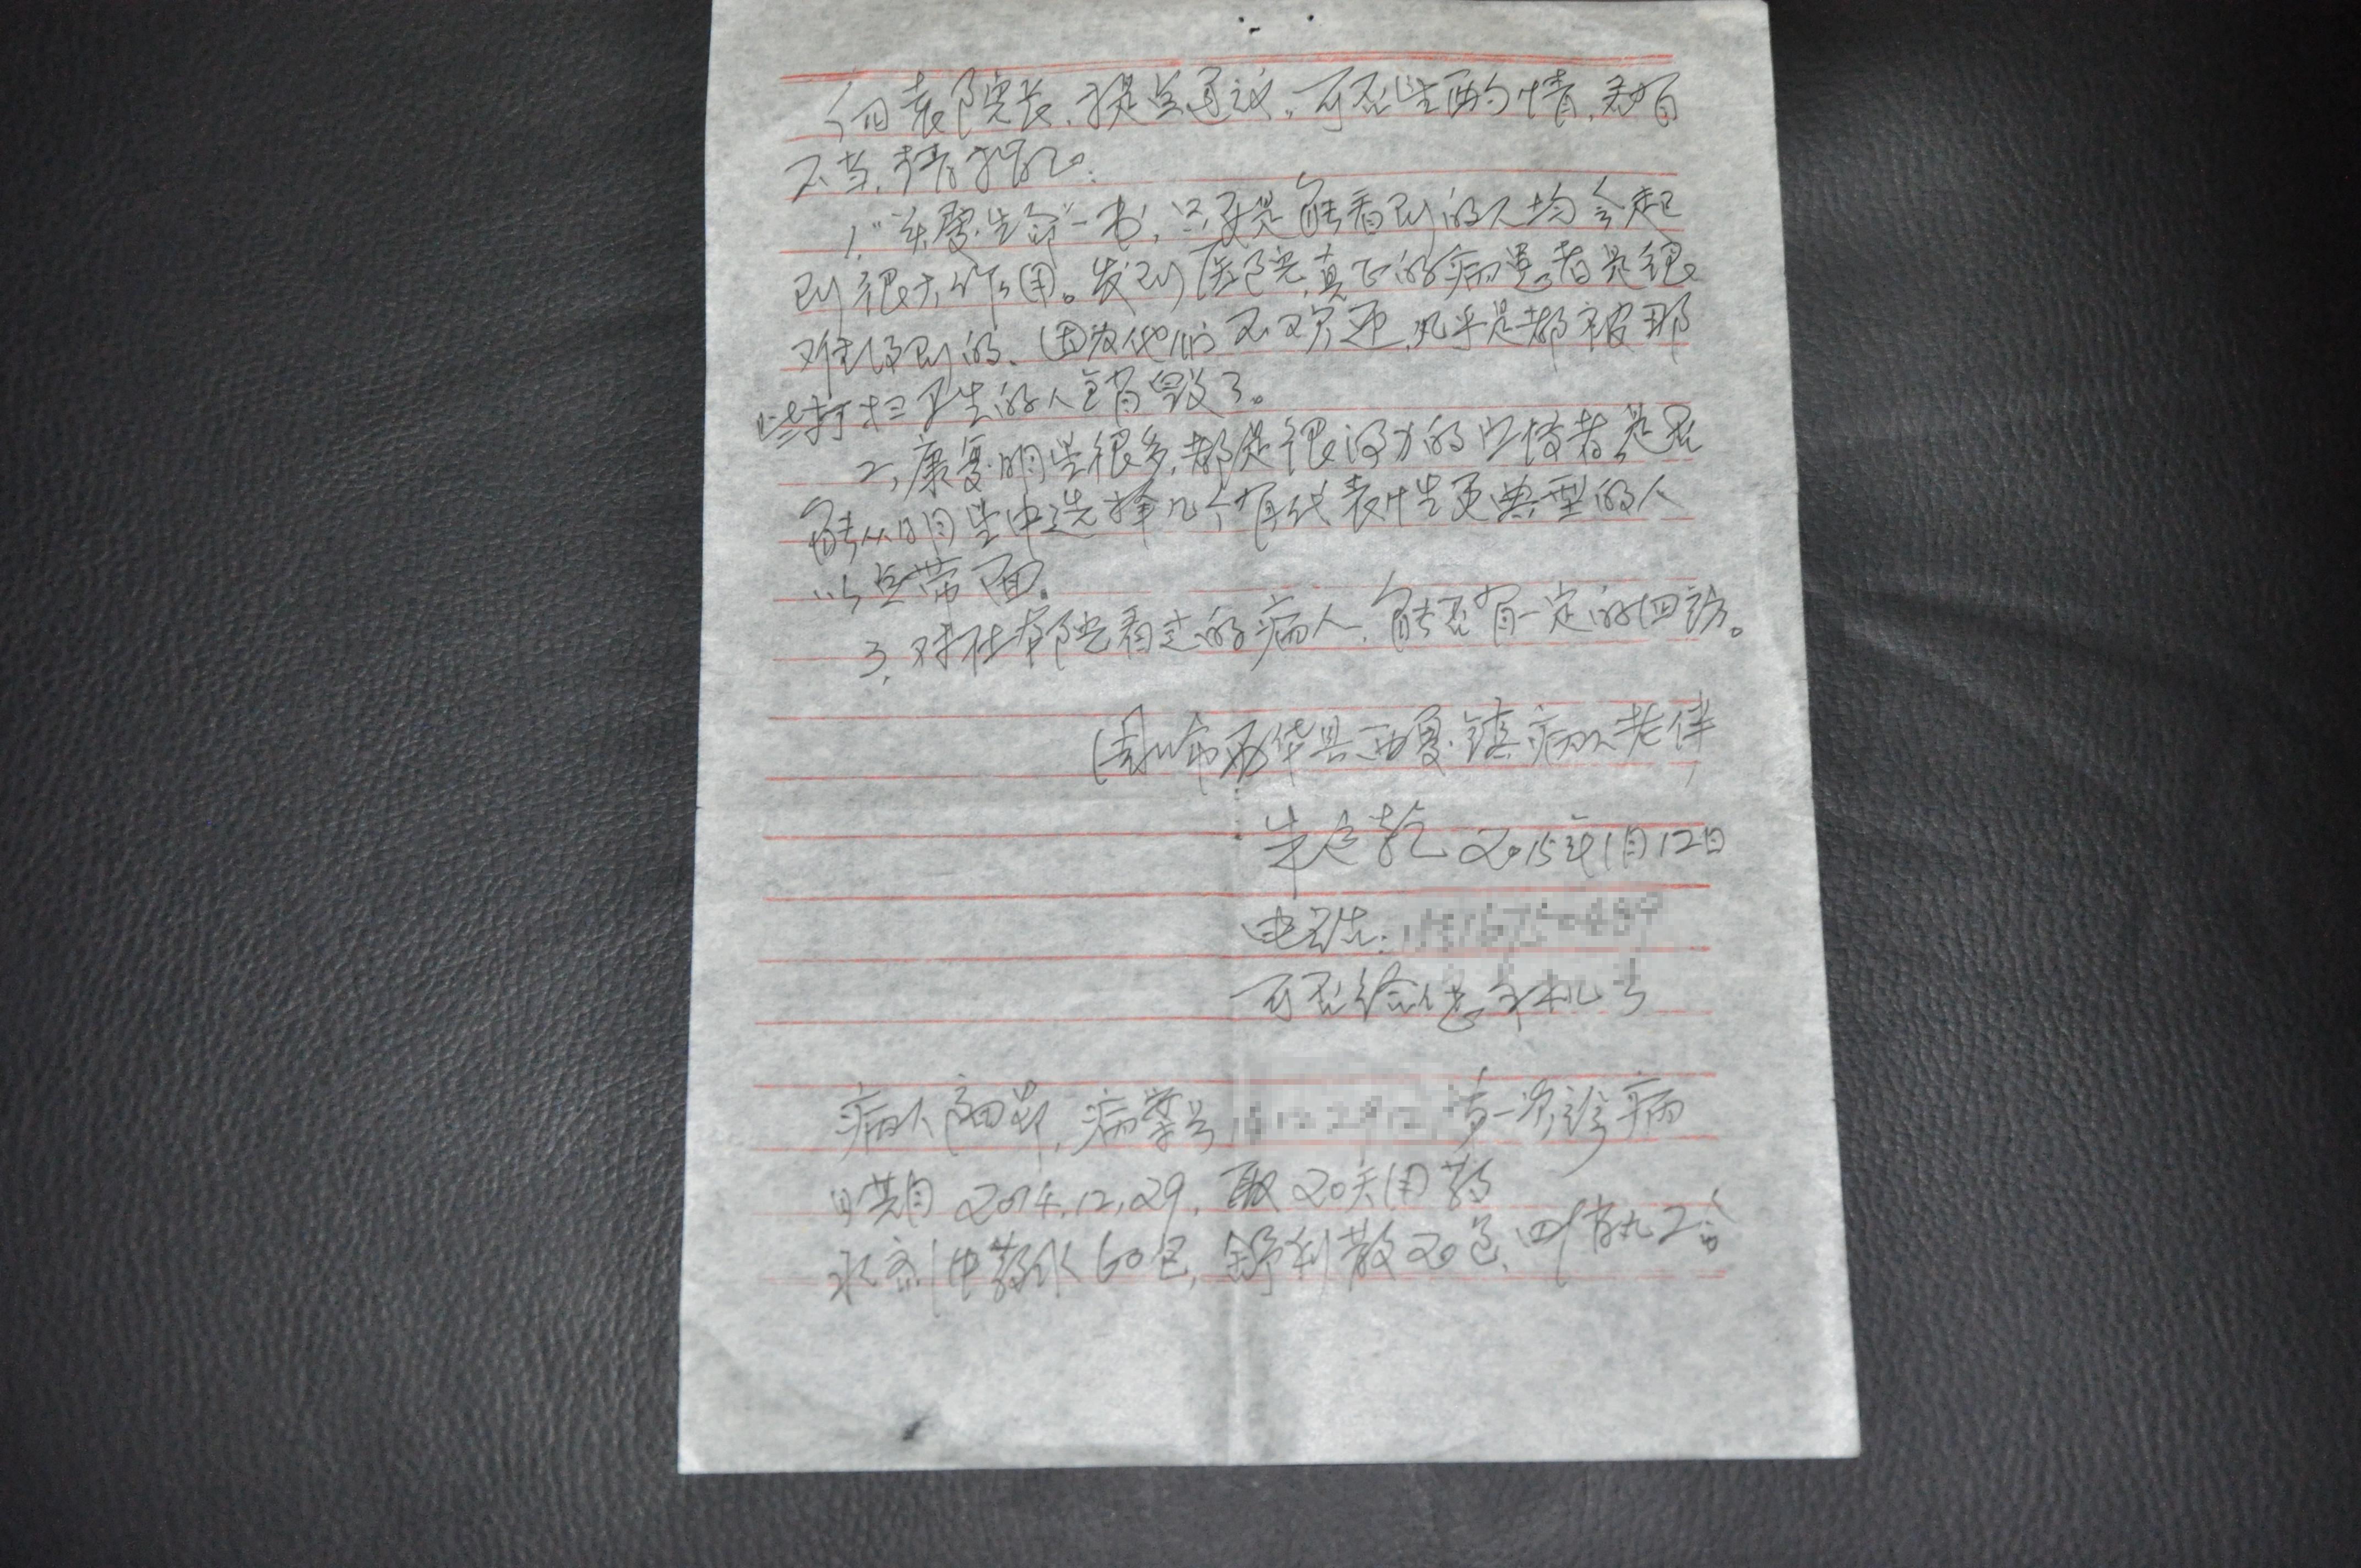 向袁院长提点建议，可否望酌情，如有
不当，请指正。
1，"关爱生命"一书，只要是能看到的人均会起
到很大作用。发到医院，真正的病患者是很
难得到的，因为他们不欢迎，几乎是都被那
些打扫卫生的人销毁了。
2，康复明星很多，都是很得力的宣传者，是否
能从明星中选择几个有代表性更典型的人
以点带面。
3，对在本院看过的病人，能否有一定的回访。
周口市西华县西夏镇病人老伴
朱 乾 2015年1月12日
电话：
可否给您手机号
病人 病案号 第一次诊病
日期2014.12.29，取20天用药
水剂中药水60包，舒利散20包， 丸2